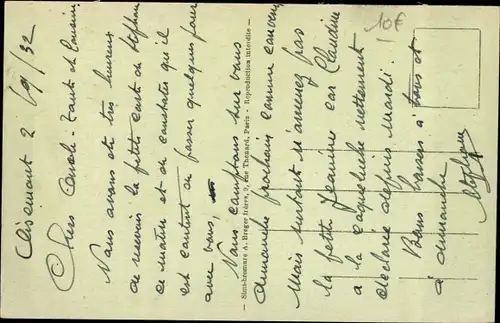 Oisemont 2/9/32
Chers Oncle - Tante et Cousine
Nous avons été très heureux
de recevoir la petite carte de Stéphane
ce matin et de constater qu'il
est content de passer quelques jours
avec vous,
Nous comptons sur vous
dimanche prochain comme convenu
Mais surtout n'amenez pas
la petite Jeannine car Claudine
a la coqueluche nettement
déclarée depuis mardi.
Bons baisers à tous et
à dimanche
— Simi-bromure A. Breger frères, 9, rue Thénard, Paris - Reproduction interdite —
10F